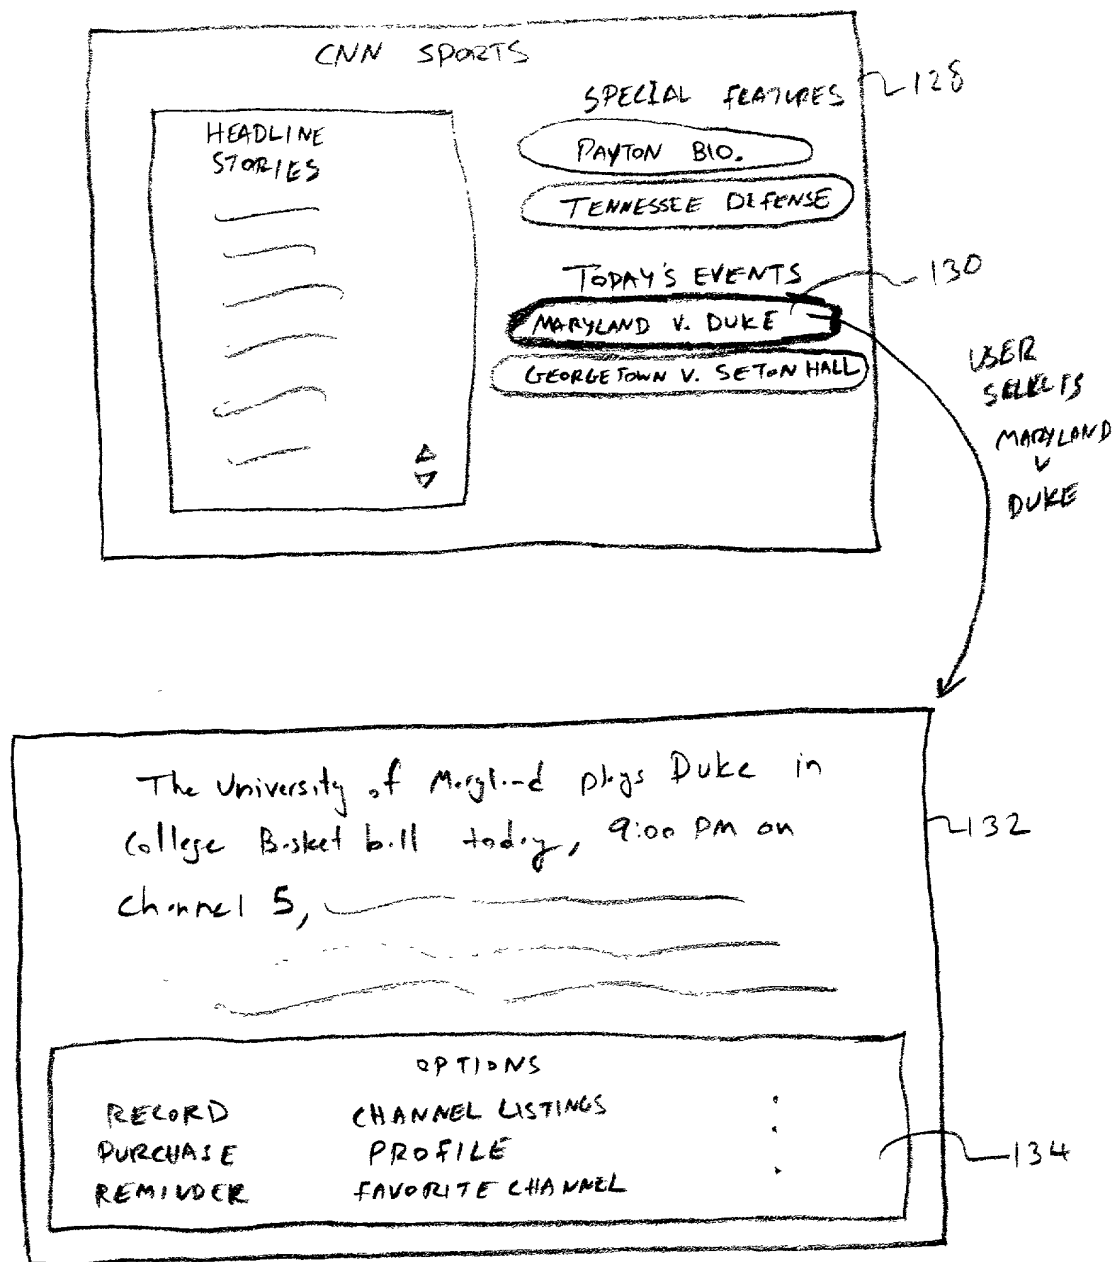 CNN SPORTS
SPECIAL FEATURES
128
HEADLINE
STORIES
PAYTON BIO.
TENNESSEE DEFENSE
TODAY'S EVENTS
130
MARYLAND V. DUKE
GEORGETOWN V. SETON HALL
USER
SELECTS
MARYLAND
V
DUKE
The University of Maryland plays Duke in
College Basketball today, 9:00 PM on
Channel 5,
132
OPTIONS
RECORD CHANNEL LISTINGS
PURCHASE PROFILE
REMINDER FAVORITE CHANNEL
134